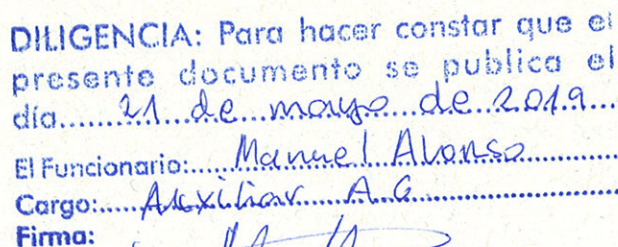 DILIGENCIA: Para hacer constar que el
presente documento se publica el
día......21...de...mayo.....de..2019...
El Funcionario:......Manuel Alonso..............
Cargo:.....Auxiliar....A.G..........................
Firma: